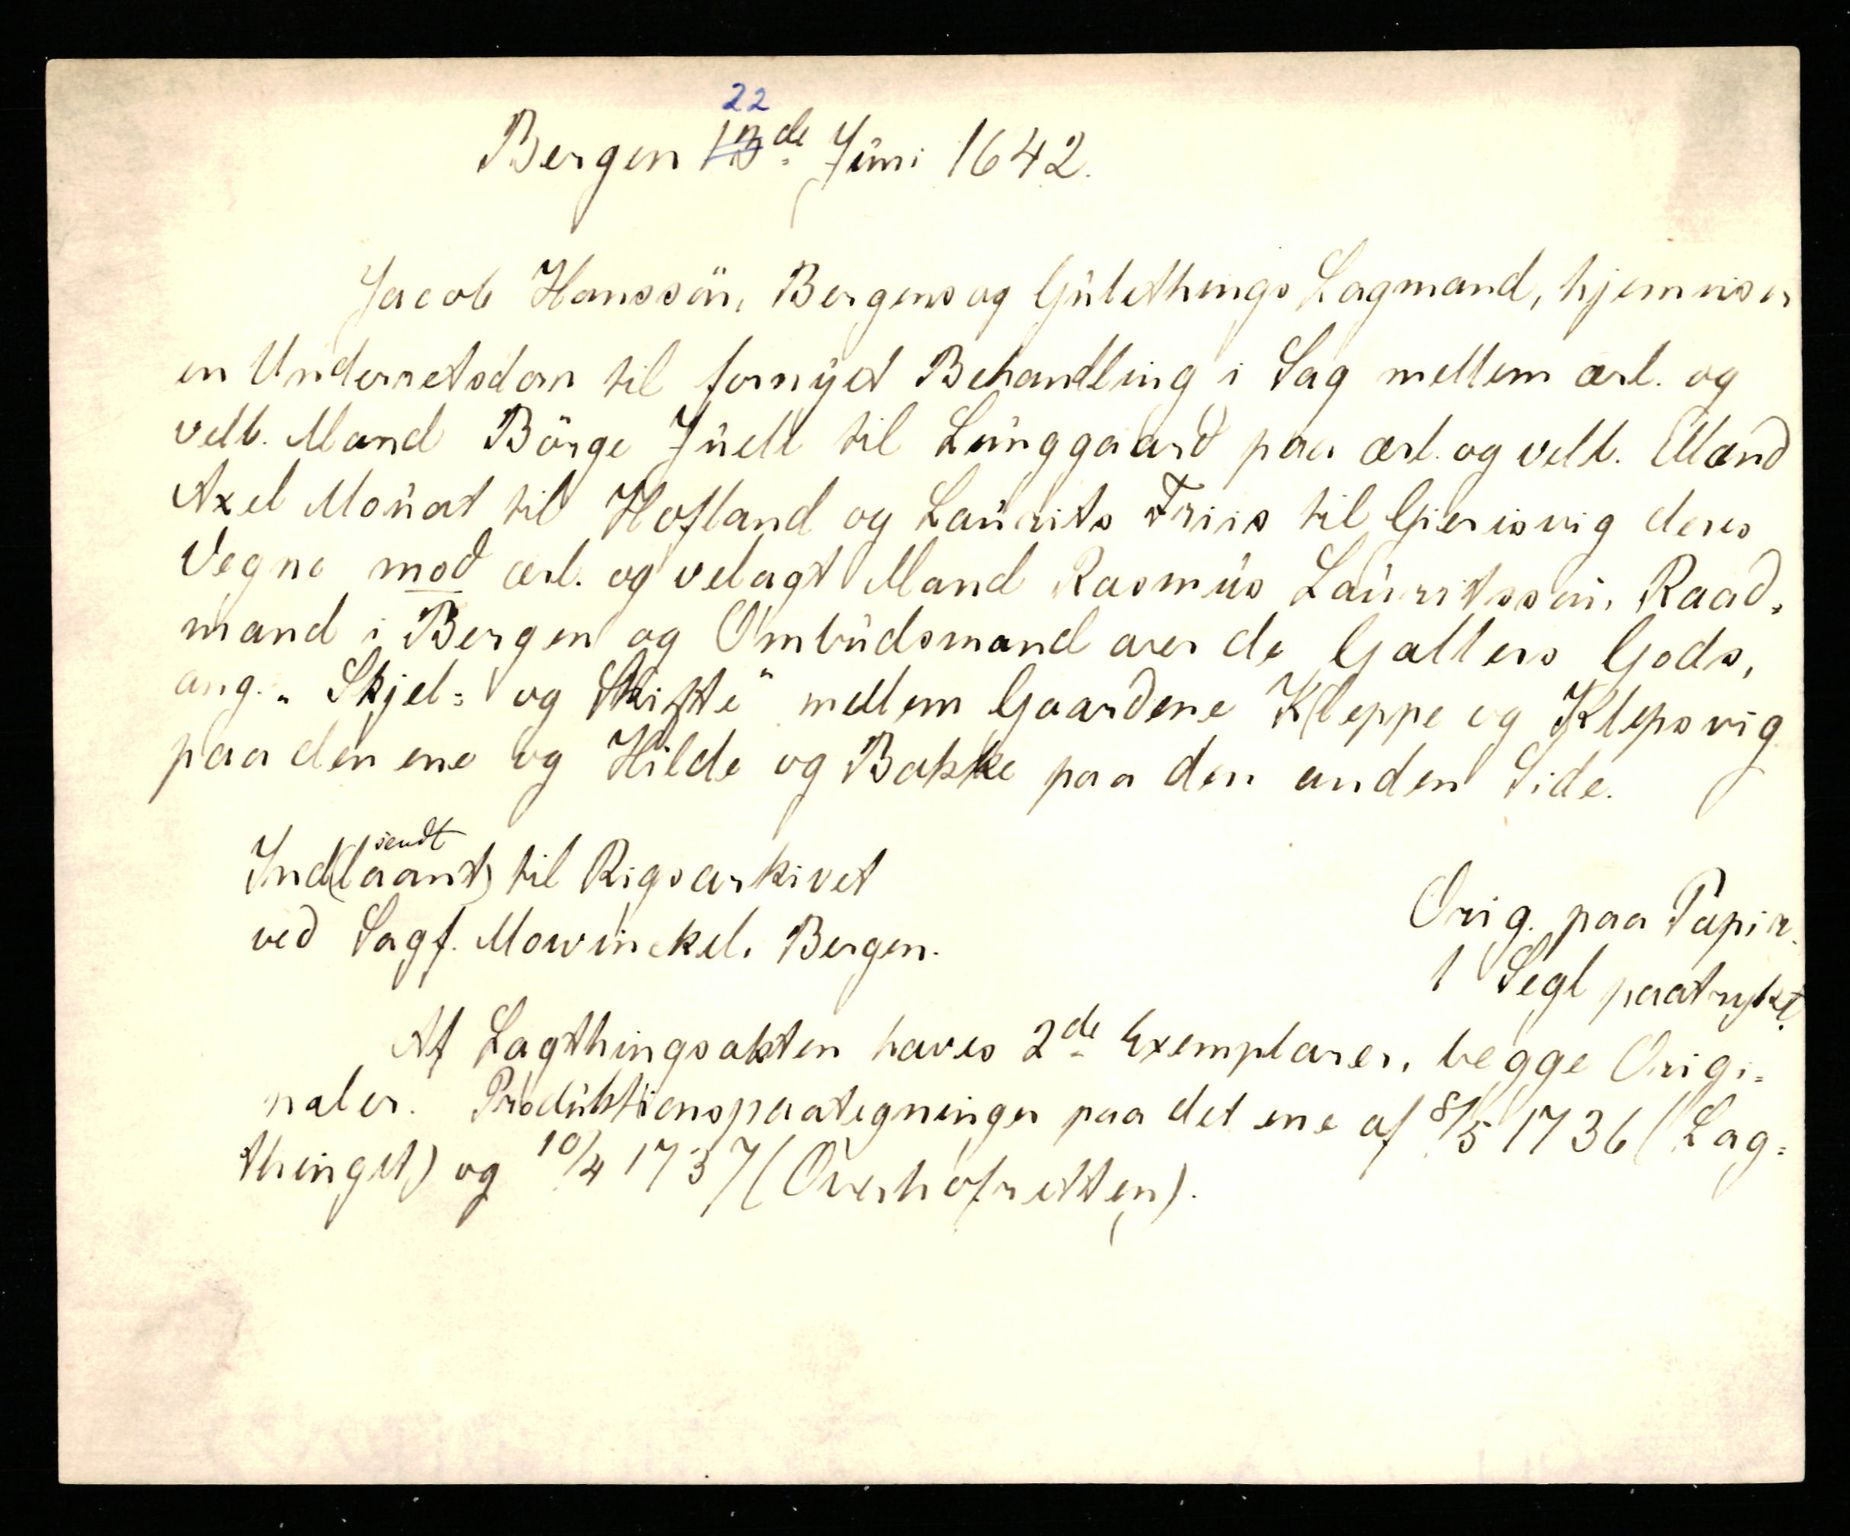 22
Bergen 13de Juni 1642.
Jacob Hanssøn, Bergens og Gulethings Lagmand, hjemviser
en Underretsdom til fornyet Behandling i Sag mellem ærl. og
velb. Mand Börge Juell til Lunggaard paa ærl. og velb. Mænd
Axel Mouat til Hofland og Laurits Friis til Giersvig deres
Vegne mod ærl. og velagt Mand Rasmus Lauritssøn, Raad-
mand i Bergen og Ombudsmand over de Gallers Gods,
ang. „Skjel- og Skifte" mellem Gaardene Kleppe og Klepsvig
paa den ene og Hilde og Bakke paa den anden Side.
sendt
Ind(laant) til Rigsarkivet
ved Sagf. Mowinckel, Bergen.
Orig. paa Papir.
1 Segl paatrykt.
Af Lagthingsakten haves 2de Exemplarer, begge Origi-
naler. Produktionspaategninger paa det ene af 8/5 1736 (Lag-
thinget) og 10/4 1737 (Overhofretten).